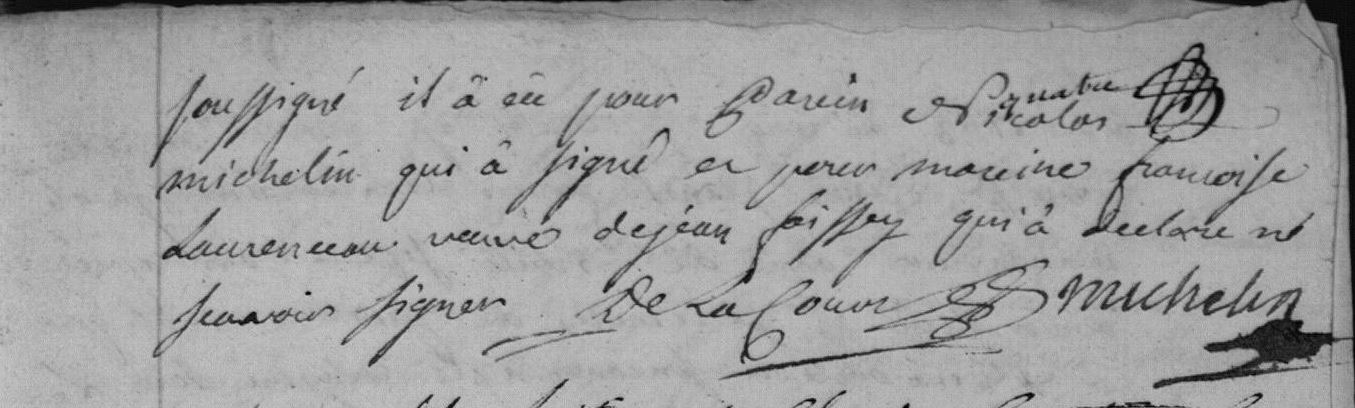 quatre
soussigné il â eû pour parein Nicolas
michelin qui â signé et pour mareine francoise
Laurenceau veuve de jean soissey qui â declare ne
scavoir signer De La Cour michelin